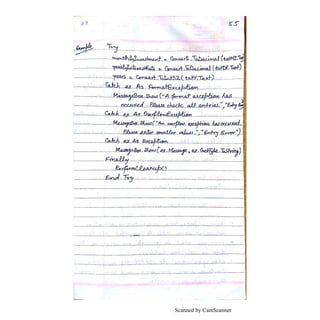 55
Example Try
monthlyInvestment = Convert.ToDecimal(txtMI.Text)
yearlyInterestRate = Convert.ToDecimal(txtIR.Text)
years = Convert.ToInt32(txtYr.Text)
Catch ex As FormatException
MessageBox.Show("A format exception has
occurred. Please check all entries.", "Entry Error")
Catch ex As OverflowException
MessageBox.Show("An overflow exception has occurred.
Please enter smaller values.", "Entry Error")
Catch ex As Exception
MessageBox.Show(ex.Message, ex.GetType.ToString)
Finally
End Try
Scanned by CamScanner